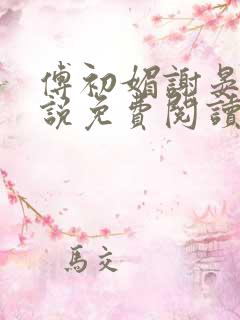 傅初媚謝晃
說免費閱讀
馬交